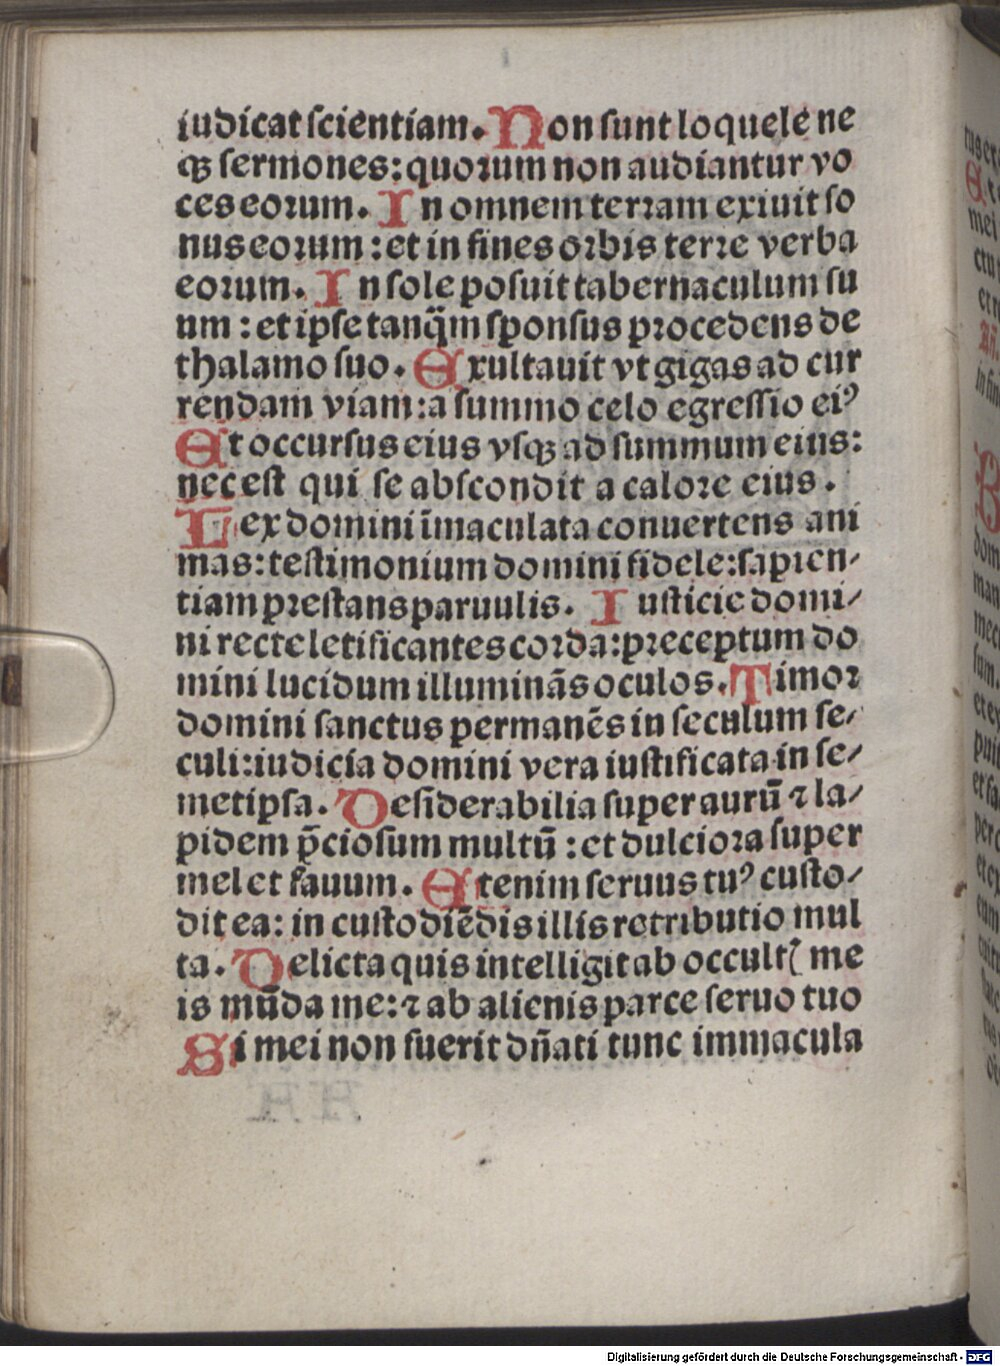 iudicat ſcientiam. Non ſunt loquele ne
qꝫ ſermones: quoꝛum non audiantur vo
ces eoꝛum. In omnem terꝛam exiuit ſo
nus eoꝛum : et in fines oꝛbis terre verba
eoꝛum. In ſole poſuit tabernaculum ſu
um : et ipſe tanq̃m ſponſus pꝛocedens de
thalamo ſuo. Exultauit vt gigas ad cur
rendam viam: a ſummo celo egreſſio eiꝰ
Et occurſus eius vſqꝫ ad ſummum eius:
nec eſt qui ſe abſcondit a caloꝛe eius .
Lex domini ĩmaculata conuertens ani
mas: teſtimonium domini fidele: ſapien⸗
tiam pꝛeſtans paruulis. Iuſticie domi⸗
ni recte letificantes coꝛda: pꝛeceptum do
mini lucidum illuminãs oculos. Timoꝛ
domini ſanctus permanẽs in ſeculum ſe⸗
culi: iudicia domini vera iuſtificata in ſe⸗
metipſa. Deſiderabilia ſuper aurũ ⁊ la⸗
pidem p̃cioſum multũ : et dulcioꝛa ſuper
mel et fauum. Etenim ſeruus tuꝰ cuſto⸗
dit ea: in cuſtodiẽdis illis retributio mul
ta. Delicta quis intelligit ab occultꝭ me
is mũda me: ⁊ ab alienis parce ſeruo tuo
Si mei non fuerit dñati tunc immacula
Digitalisierung gefördert durch die Deutsche Forschungsgemeinschaft - DFG